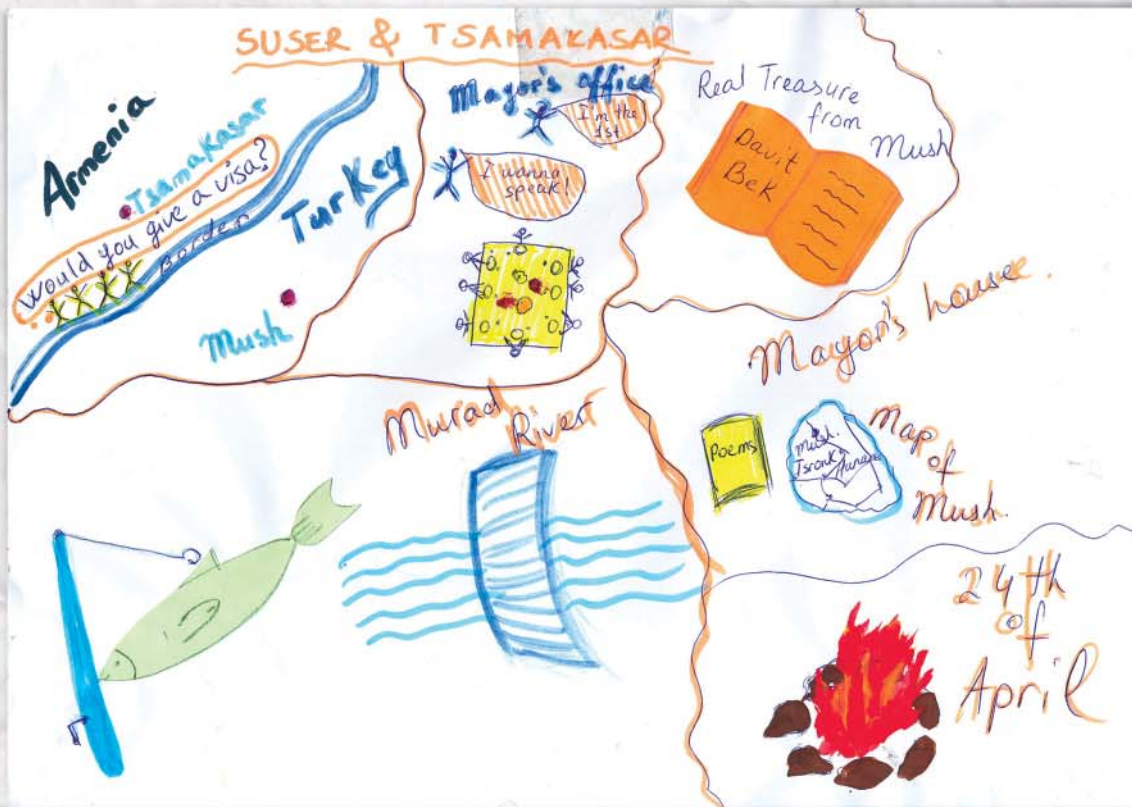 SUSER & TSAMAKASAR
Armenia
Tsamakasar
Would you give a visa?
Border
Turkey
Mush
Mayor's office
I'm the
1st
I wanna
speak!
Real Treasure
from
Mush
Davit
Bek
Murad
River
Mayor's house.
Poems
Mush.
Tsronk
Map
of
Mush.
24th
of
April